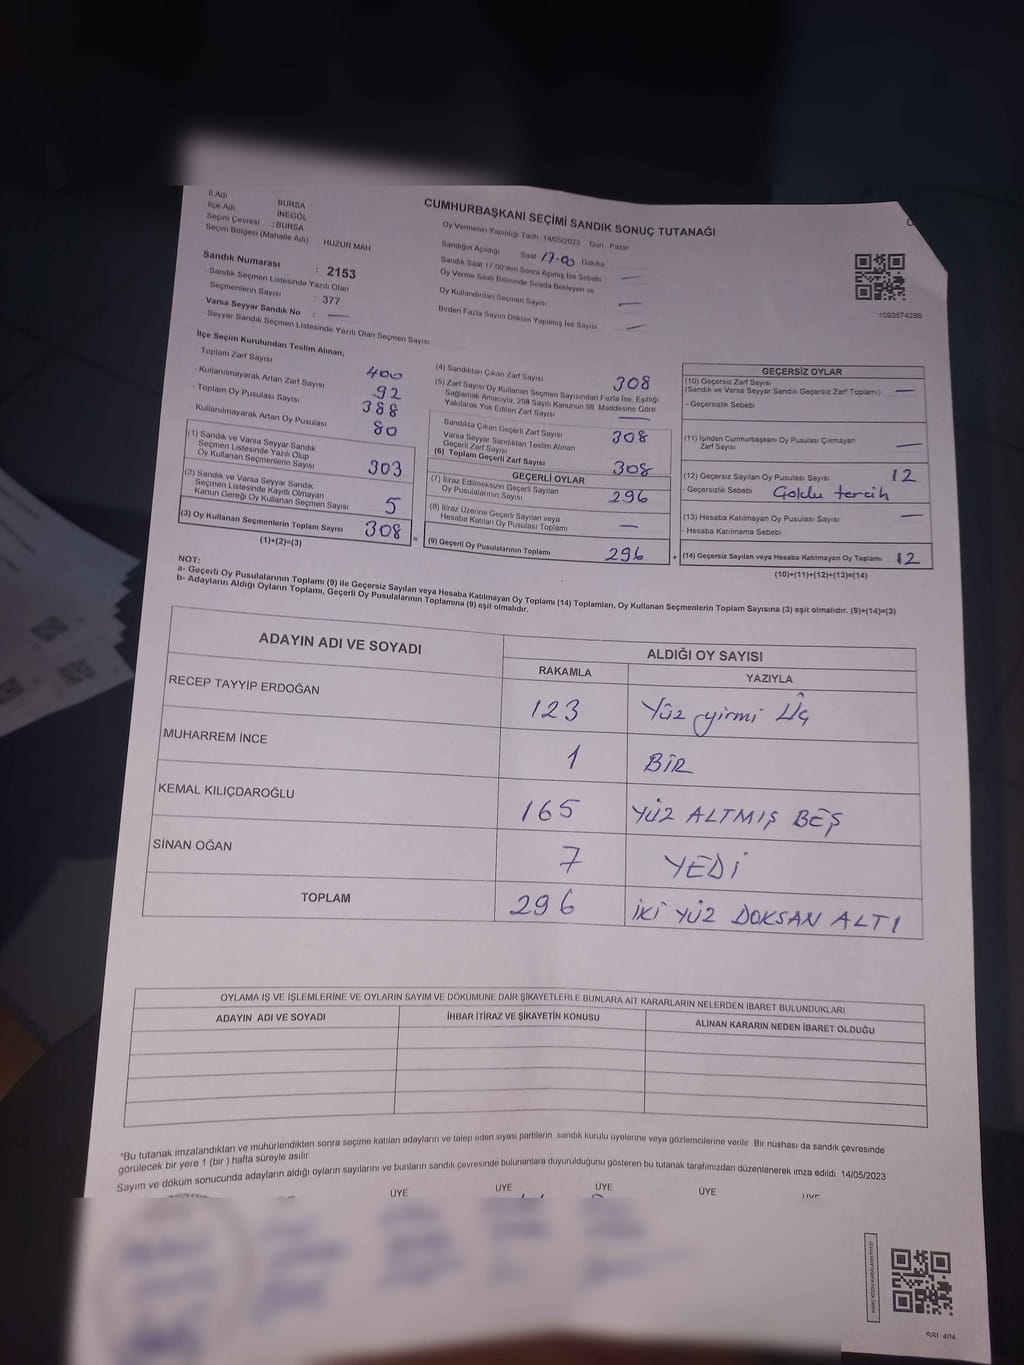 İl Adı : BURSA
İlçe Adı : İNEGÖL
Seçim Çevresi : BURSA
Seçim Bölgesi (Mahalle Adı) HUZUR MAH
Sandık Numarası : 2153
- Sandık Seçmen Listesinde Yazılı Olan
Seçmenlerin Sayısı : 377
Varsa Seyyar Sandık No : —
- Seyyar Sandık Seçmen Listesinde Yazılı Olan Seçmen Sayısı
CUMHURBAŞKANI SEÇİMİ SANDIK SONUÇ TUTANAĞI
Oy Vermenin Yapıldığı Tarih 14/05/2023 Gün Pazar
Sandığın Açıldığı Saat 17.00 Dakika
Sandık Saat 17.00'den Sonra Açılmış İse Sebebi —
Oy Verme Saati Bitiminde Sırada Bekleyen ve
Oy Kullandırılan Seçmen Sayısı —
Birden Fazla Sayım Döküm Yapılmış İse Sayısı —
1093574286
İlçe Seçim Kurulundan Teslim Alınan;
- Toplam Zarf Sayısı 400
- Kullanılmayarak Artan Zarf Sayısı 92
- Toplam Oy Pusulası Sayısı 388
- Kullanılmayarak Artan Oy Pusulası 80
(1) Sandık ve Varsa Seyyar Sandık
Seçmen Listesinde Yazılı Olup
Oy Kullanan Seçmenlerin Sayısı 303
(2) Sandık ve Varsa Seyyar Sandık
Seçmen Listesinde Kayıtlı Olmayan
Kanun Gereği Oy Kullanan Seçmen Sayısı 5
(3) Oy Kullanan Seçmenlerin Toplam Sayısı 308
(1)+(2)=(3)
(4) Sandıktan Çıkan Zarf Sayısı 308
(5) Zarf Sayısı Oy Kullanan Seçmen Sayısından Fazla İse, Eşitliği
Sağlamak Amacıyla, 298 Sayılı Kanunun 98. Maddesine Göre
Yakılarak Yok Edilen Zarf Sayısı —
Sandıkta Çıkan Geçerli Zarf Sayısı 308
Varsa Seyyar Sandıktan Teslim Alınan
Geçerli Zarf Sayısı
(6) Toplam Geçerli Zarf Sayısı 308
GEÇERLİ OYLAR
(7) İtiraz Edilmeksizin Geçerli Sayılan
Oy Pusulalarının Sayısı 296
(8) İtiraz Üzerine Geçerli Sayılan veya
Hesaba Katılan Oy Pusulası Toplamı —
= (9) Geçerli Oy Pusulalarının Toplamı 296
GEÇERSİZ OYLAR
(10) Geçersiz Zarf Sayısı
(Sandık ve Varsa Seyyar Sandık Geçersiz Zarf Toplamı) —
- Geçersizlik Sebebi
(11) İçinden Cumhurbaşkanı Oy Pusulası Çıkmayan
Zarf Sayısı —
(12) Geçersiz Sayılan Oy Pusulası Sayısı 12
- Geçersizlik Sebebi Çoklu tercih
(13) Hesaba Katılmayan Oy Pusulası Sayısı —
- Hesaba Katılmama Sebebi
+ (14) Geçersiz Sayılan veya Hesaba Katılmayan Oy Toplamı 12
(10)+(11)+(12)+(13)=(14)
NOT:
a- Geçerli Oy Pusulalarının Toplamı (9) ile Geçersiz Sayılan veya Hesaba Katılmayan Oy Toplamı (14) Toplamları, Oy Kullanan Seçmenlerin Toplam Sayısına (3) eşit olmalıdır. (9)+(14)=(3)
b- Adayların Aldığı Oyların Toplamı, Geçerli Oy Pusulalarının Toplamına (9) eşit olmalıdır.
ADAYIN ADI VE SOYADI ALDIĞI OY SAYISI
RAKAMLA YAZIYLA
RECEP TAYYİP ERDOĞAN 123 Yüz yirmi Üç
MUHARREM İNCE 1 BİR
KEMAL KILIÇDAROĞLU 165 YÜZ ALTMIŞ BEŞ
SİNAN OĞAN 7 YEDİ
TOPLAM 296 İKİ YÜZ DOKSAN ALTI
OYLAMA İŞ VE İŞLEMLERİNE VE OYLARIN SAYIM VE DÖKÜMÜNE DAİR ŞİKAYETLERLE BUNLARA AİT KARARLARIN NELERDEN İBARET BULUNDUKLARI
ADAYIN ADI VE SOYADI İHBAR İTİRAZ VE ŞİKAYETİN KONUSU ALINAN KARARIN NEDEN İBARET OLDUĞU
*Bu tutanak imzalandıktan ve mühürlendikten sonra seçime katılan adayların ve talep eden siyasi partilerin sandık kurulu üyelerine veya gözlemcilerine verilir. Bir nüshası da sandık çevresinde
görülecek bir yere 1 (bir) hafta süreyle asılır.
Sayım ve döküm sonucunda adayların aldığı oyların sayılarını ve bunların sandık çevresinde bulunanlara duyurulduğunu gösteren bu tutanak tarafımızdan düzenlenerek imza edildi. 14/05/2023
ÜYE ÜYE ÜYE ÜYE ÜYE